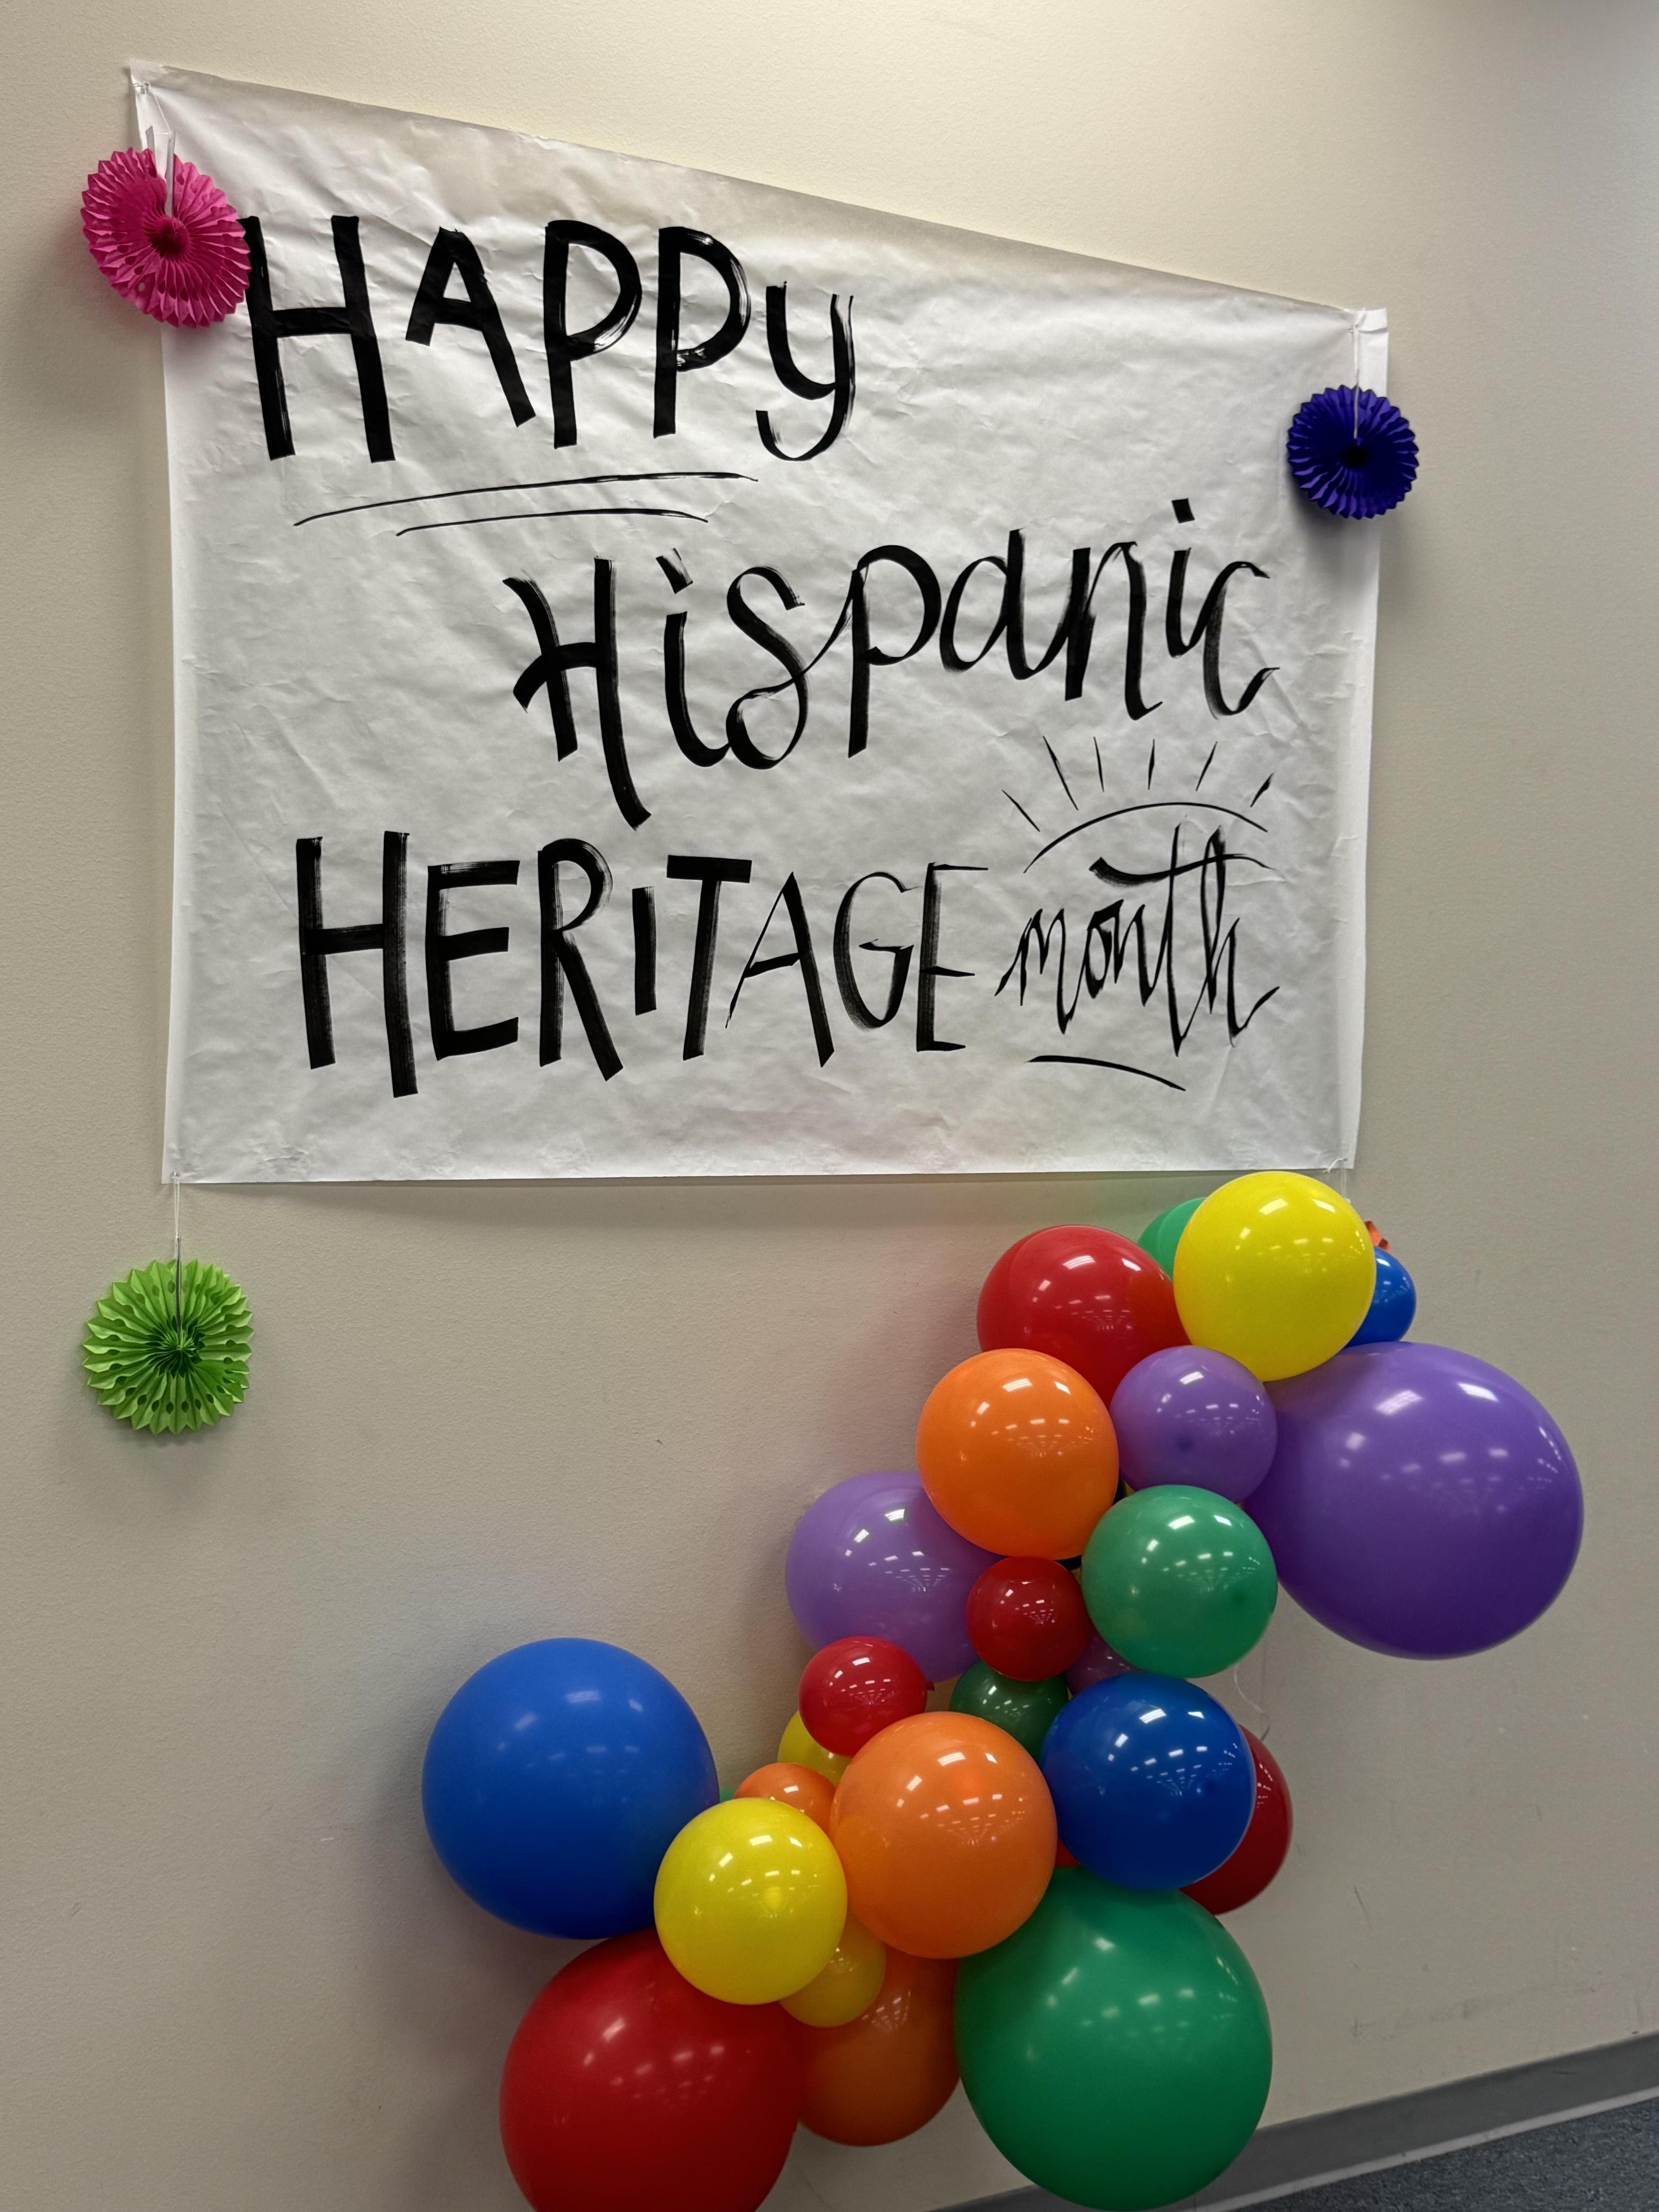 HAPPy
Hispanic
HERITAGE month